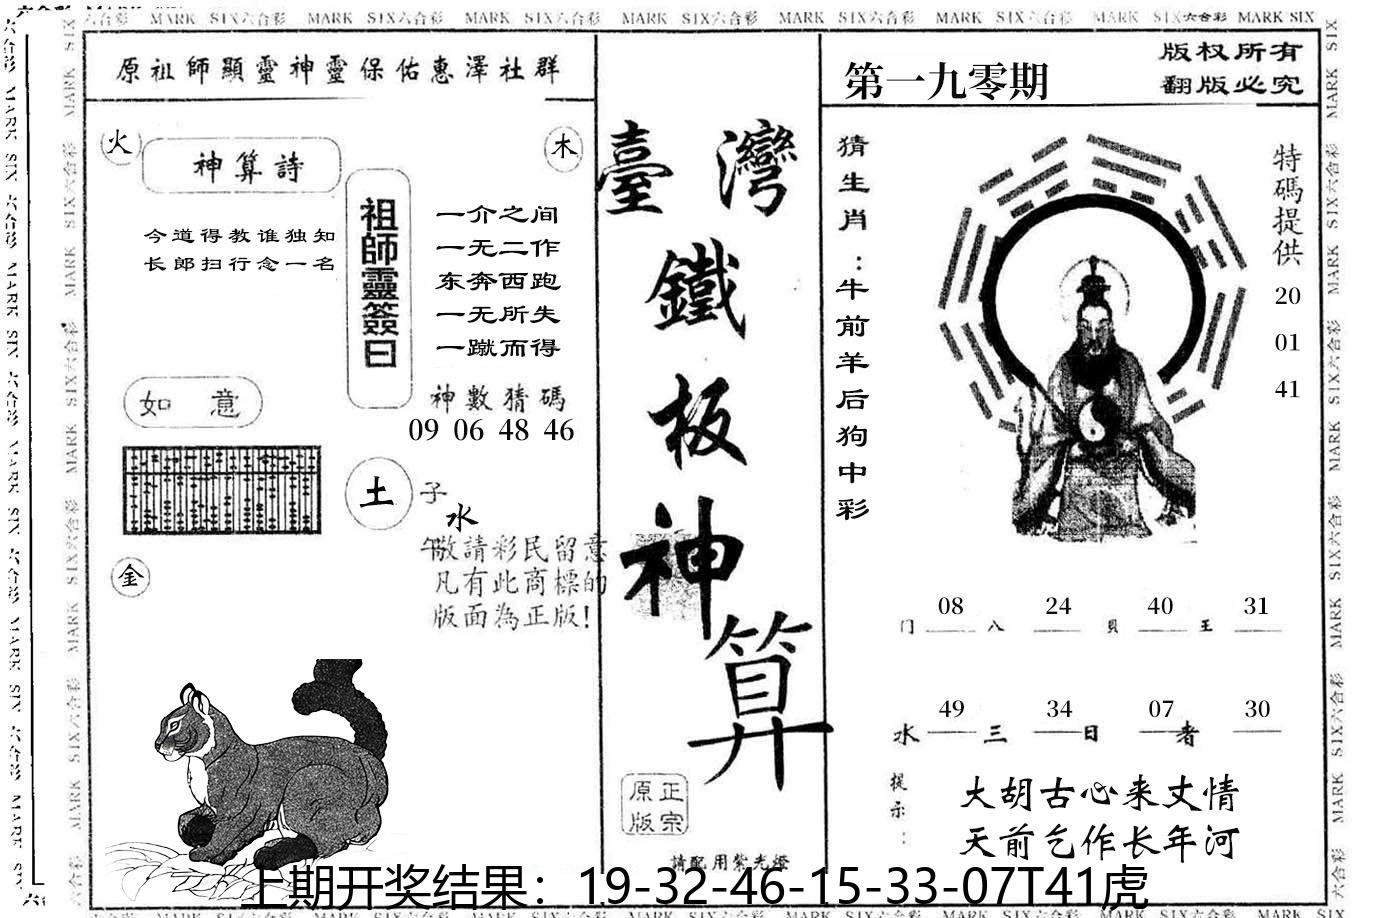 原祖師顯靈神靈保佑惠澤社群
火
神算詩
木
今道得教谁独知
长郎扫行念一名
祖師靈簽曰
一介之间
一无二作
东奔西跑
一无所失
一蹴而得
神數猜碼
09 06 48 46
如 意
土
子
水
午
敬請彩民留意
凡有此商標的
版面為正版!
金
臺灣
鐵
板
神
算
正宗
原版
請配用紫光燈
第一九零期
版权所有
翻版必究
猜生肖:牛前羊后狗中彩
特碼提供
20
01
41
08 24 40 31
门 八 貝 王
49 34 07 30
水 三 日 者
提示:
大胡古心来丈情
天前乞作长年河
上期开奖结果：19-32-46-15-33-07T41虎
MARK SIX六合彩 MARK SIX六合彩 MARK SIX六合彩 MARK SIX六合彩 MARK SIX六合彩 MARK SIX六合彩 MARK SIX六合彩 MARK SIX